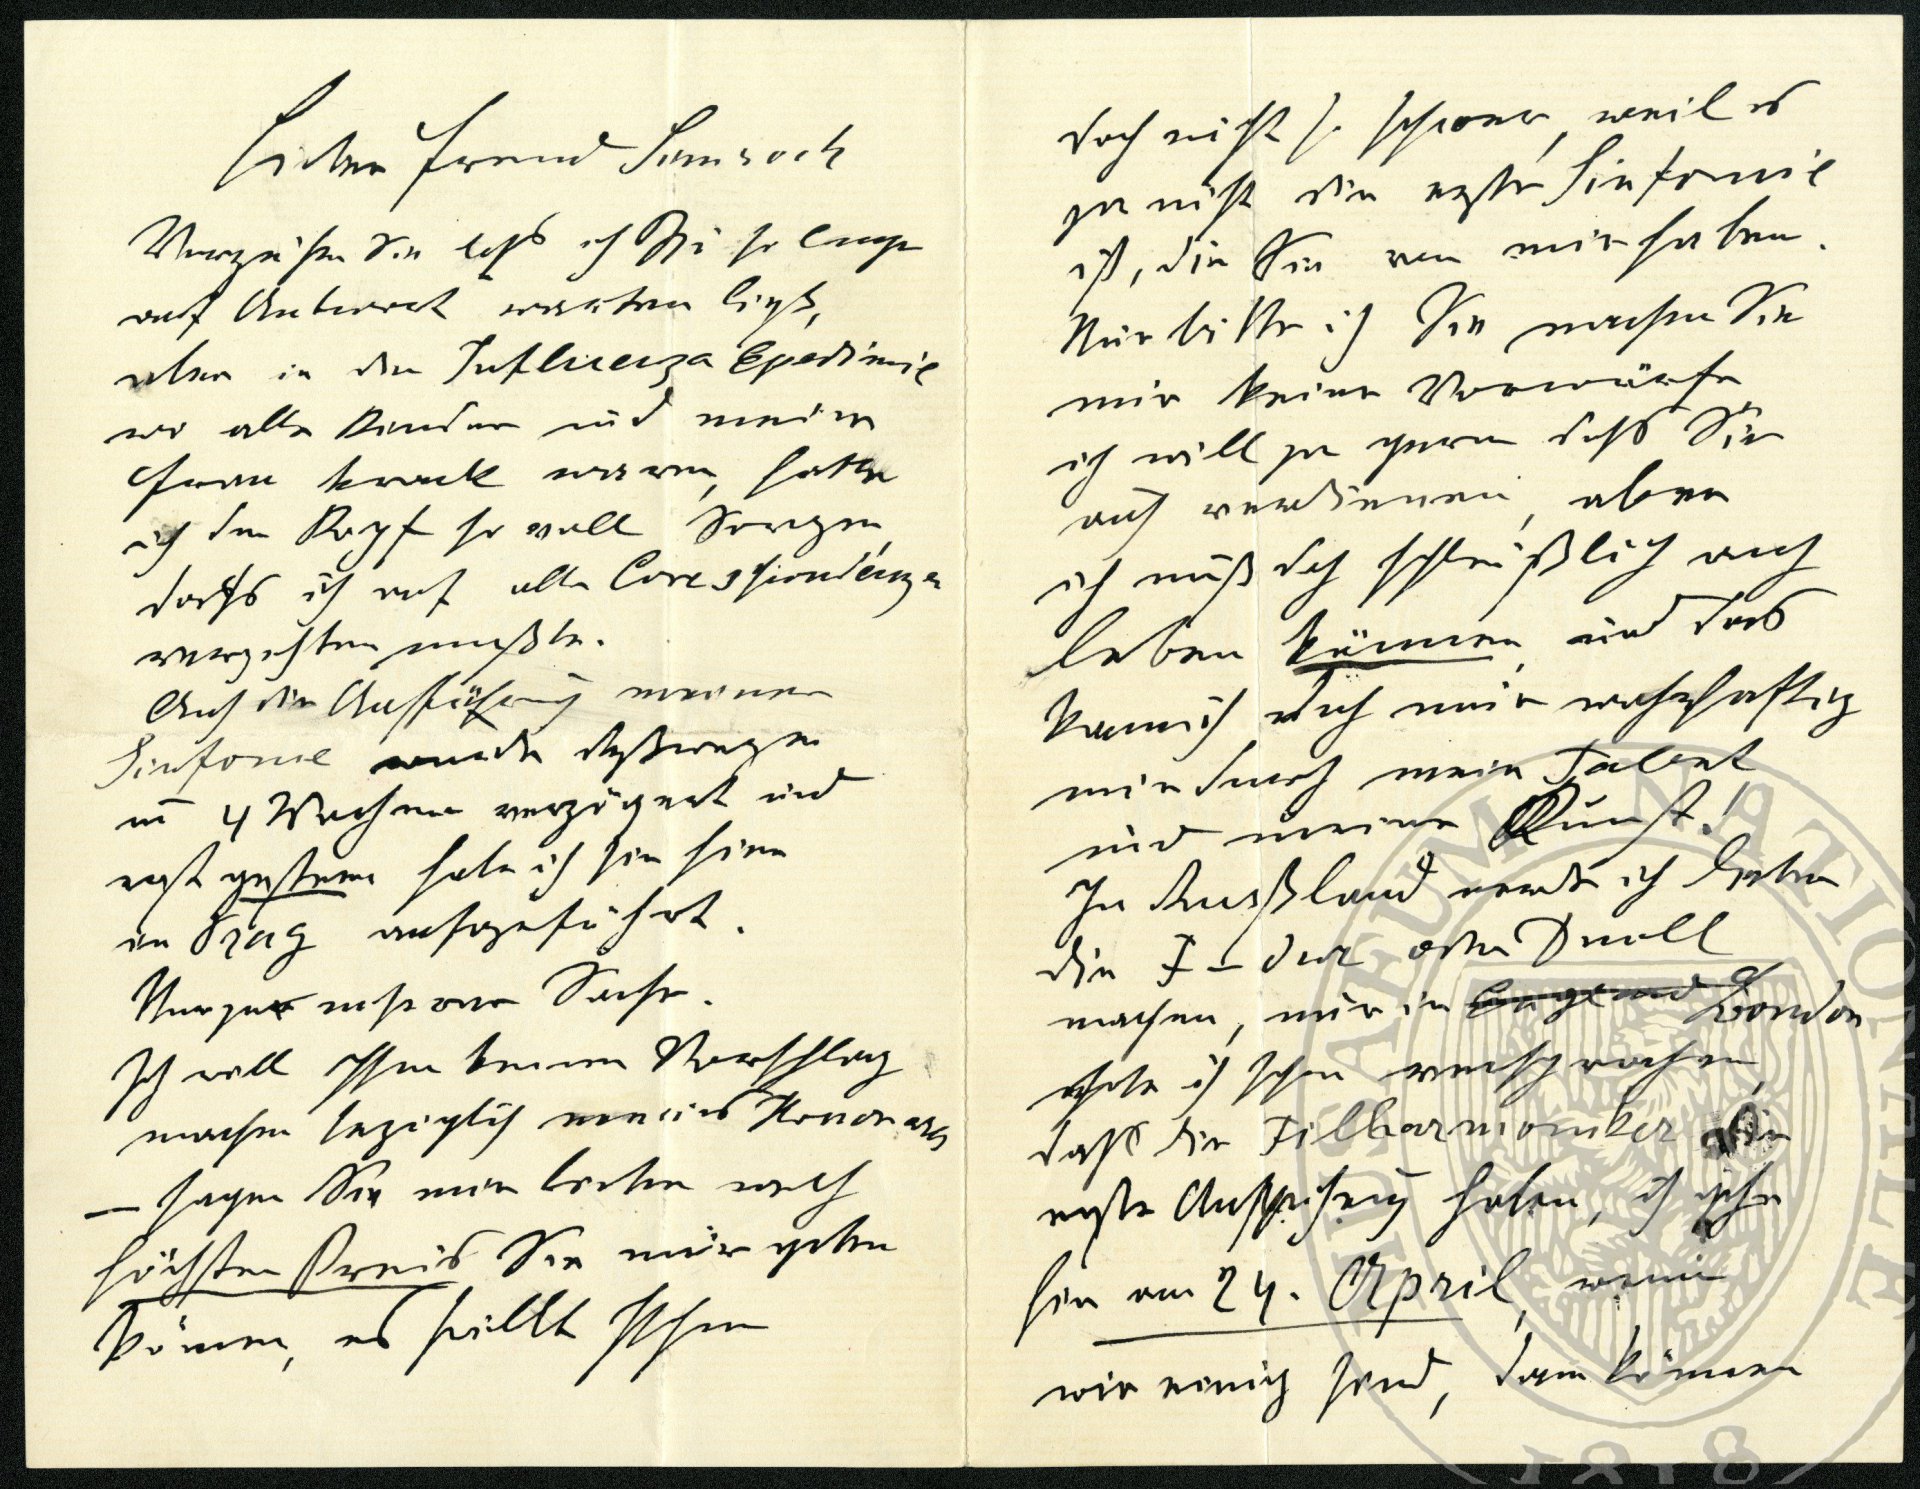 Lieber Freund Simrock
Verzeihen Sie dass ich Sie so lange
auf Antwort warten ließ,
aber in der Influenza Epedimie
wo alle Kinder und meine
Frau krank waren, hatte
ich den Kopf so voll Sorgen,
dass ich auf alle Correspondenze
verzichten mußte.
Auch die Aufführung meiner
Sinfonie wurde deßwegen
um 4 Wochen verzögert und
erst gestern habe ich sie hier
in Prag aufgeführt.
Nun zu unserer Sache.
Ich will Ihnen keinen Vorschlag
machen bezüglich meines Honorars
– sagen Sie mir lieber welch
höchsten Preis Sie mir geben
können, es fällt Ihnen
doch nicht so schwer, weil es
ja nicht die erste Sinfonie
ist, die Sie von mir haben.
Nur bitte ich Sie machen Sie
mir keine Vorwürfe
ich will ja gern dass Sie
auch verdienen, aber
ich muß doch schließlich auch
leben können, und das
kann ich doch nur wahrhaftig
nur durch mein Talent
und meine Kunst!
In Rußland werde ich lieber
die F-dur oder D moll
machen, nur in England London
habe ich schon versprochen,
dass die Filharmoniker die
erste Aufführung haben, ich gehe
hin am 24. April, wenn
wir einig sind, dann können
FUNDSAEFUM NATIONALE
1818